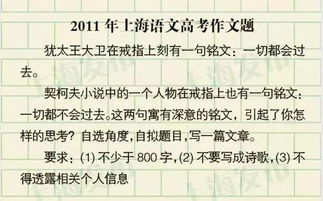 2011年上海语文高考作文题
犹太王大卫在戒指上刻有一句铭文：一切都会过
去。
契柯夫小说中的一个人物在戒指上也有一句铭文：
一切都不会过去。这两句寓有深意的铭文，引起了你怎
样的思考？自选角度，自拟题目，写一篇文章。
要求：(1)不少于800字，(2)不要写成诗歌，(3)不
得透露相关个人信息